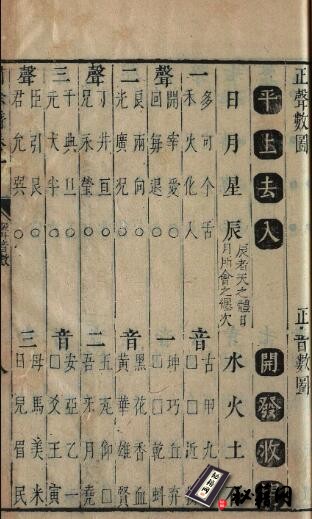 正聲數圖
平上去入
日月星辰
辰者天之體日
月所會之躔次
一聲
多可个舌
禾火化八
開宰愛○
回每退○
二聲
良兩向○
光廣況○
丁井亘○
兄永瑩○
三聲
千典旦○
元犬半○
臣引艮○
君允巽○
正音數圖
開發收
水火土
一音
古甲九
□□近
坤巧丘弃
□□乾虯
二音
黑花香血
黃華雄賢
五瓦仰□
吾牙月堯
三音
安亞乙一
□爻王寅
母馬美米
目皃眉民